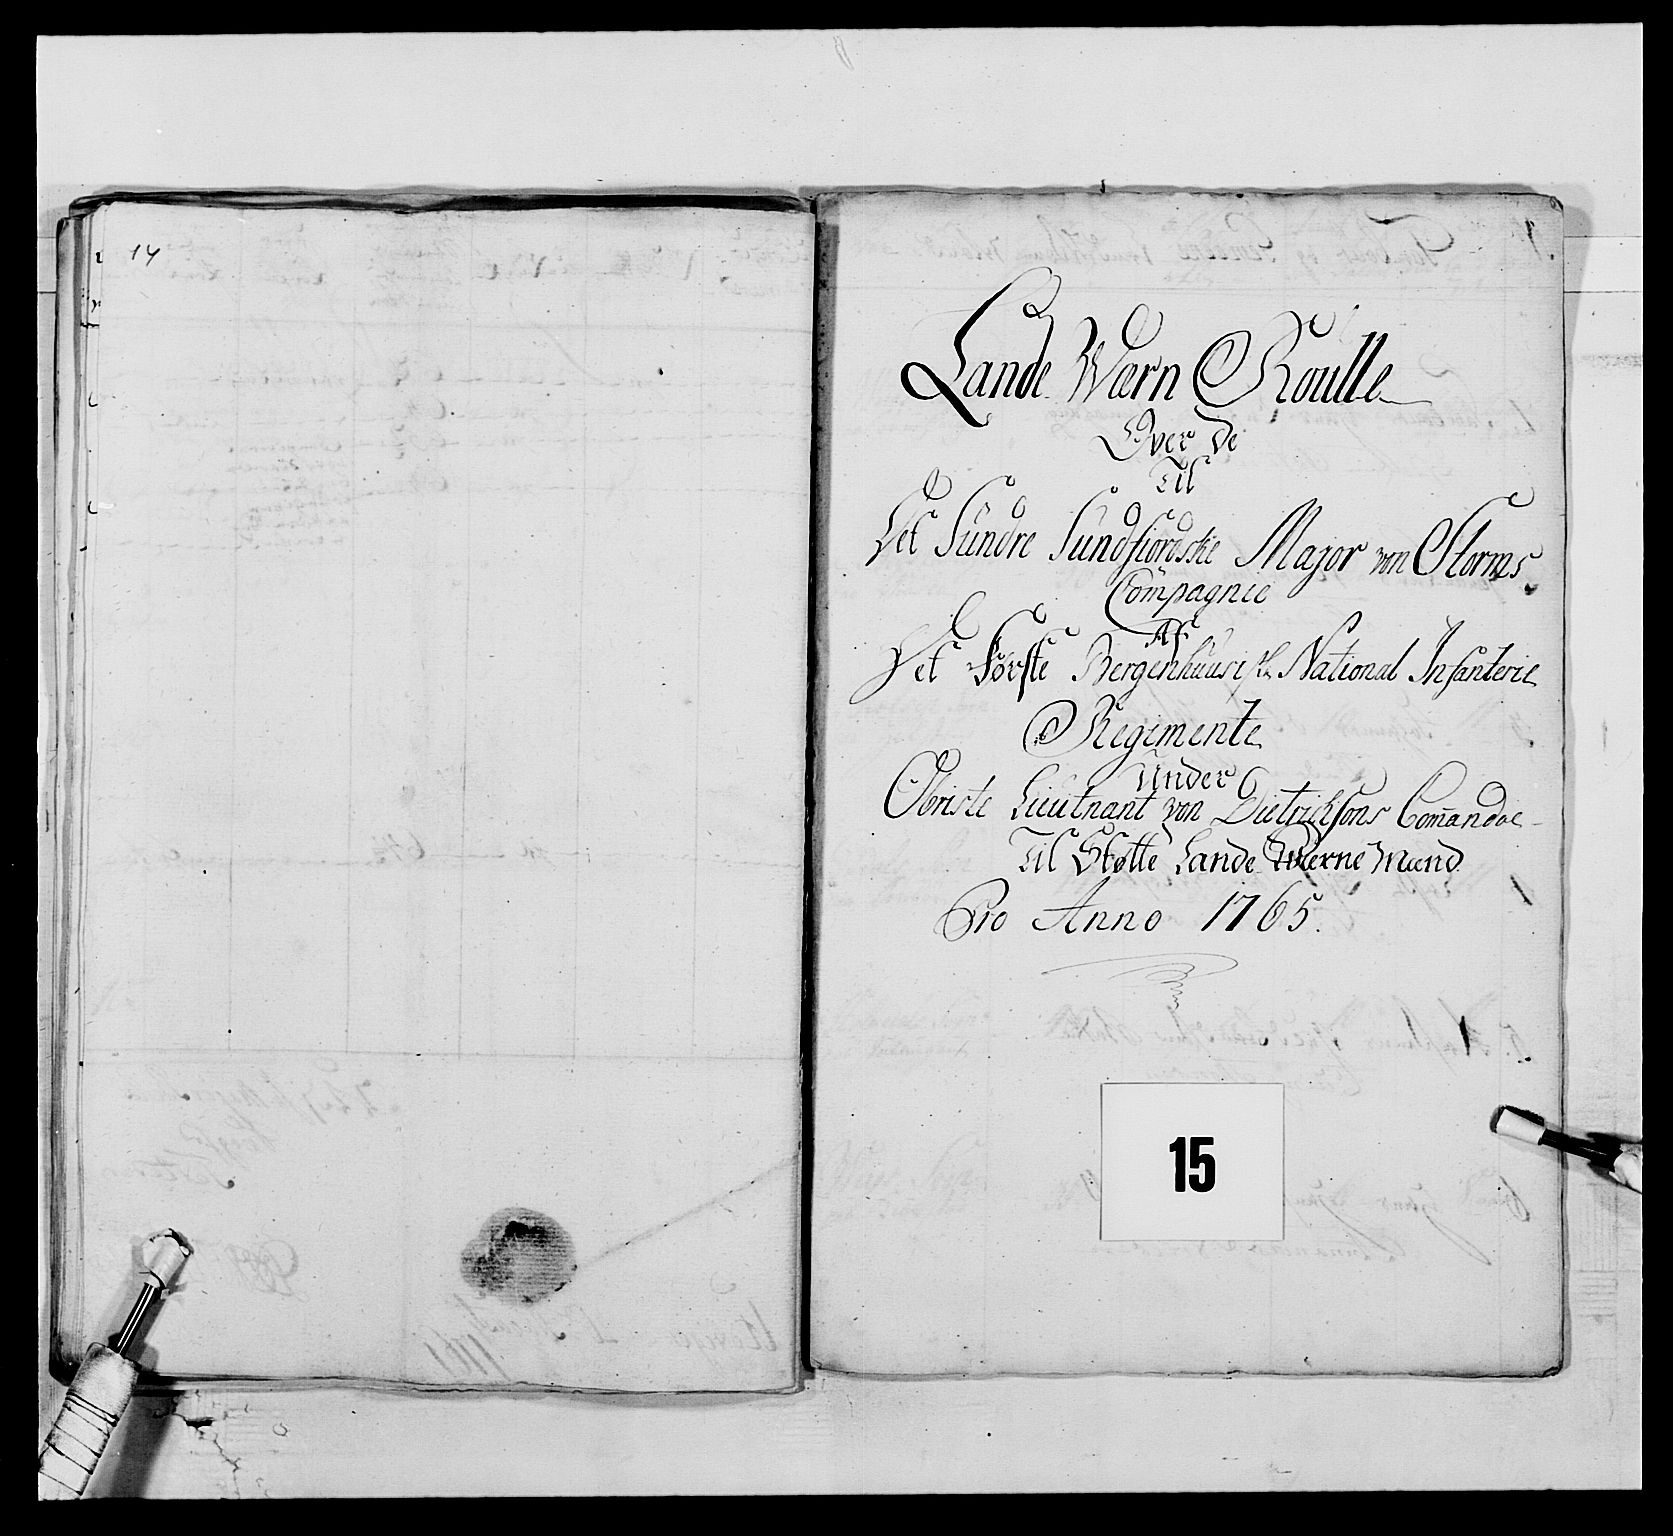 14
Lande Wærn Roulle
Over de
Til
Det Sündre Sundfiordske Major von Storms
Compagnie
Af
Det Første Bergenhuusiske National Infanterie
Regimente
Under
Obriste Lieutnant von Dietrichsons Com̄andoe
Til Støtte Lande Wærne Mænd
Pro Anno 1765.
15